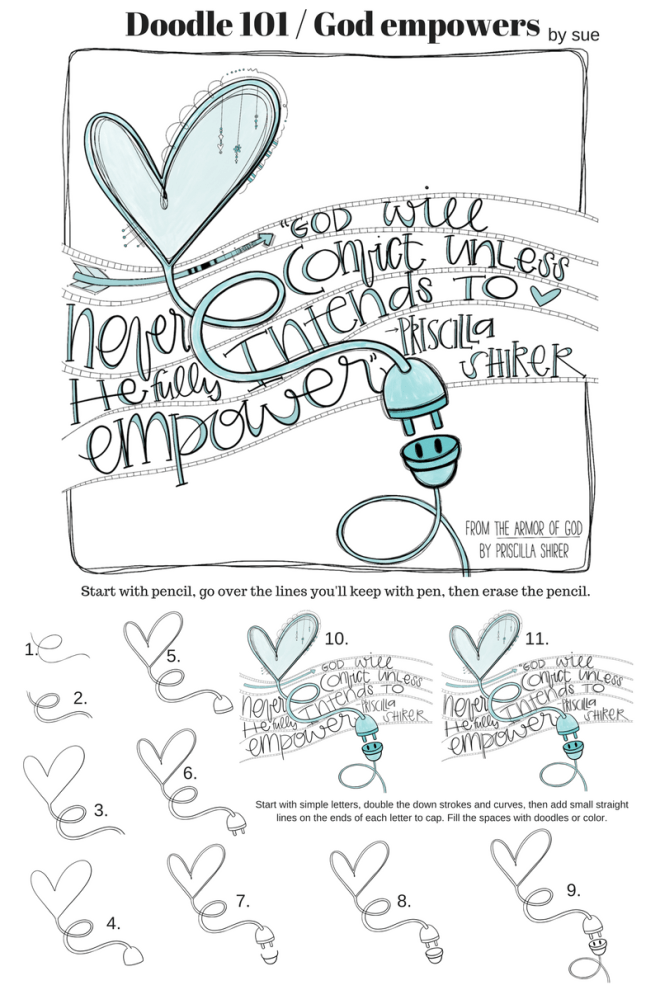 Doodle 101 / God empowers by sue
"GOD will
Never Convict UNLESS
He fully Intends TO
empower" -PRISCILLA
SHIRER
FROM THE ARMOR OF GOD
BY PRISCILLA SHIRER
Start with pencil, go over the lines you'll keep with pen, then erase the pencil.
1.
2.
3.
4.
5.
6.
7.
8.
9.
10.
GOD will
Never Convict UNLESS
He fully Intends TO
empower PRISCILLA
SHIRER
11.
GOD will
Never Convict UNLESS
He fully Intends TO
empower PRISCILLA
SHIRER
Start with simple letters, double the down strokes and curves, then add small straight
lines on the ends of each letter to cap. Fill the spaces with doodles or color.